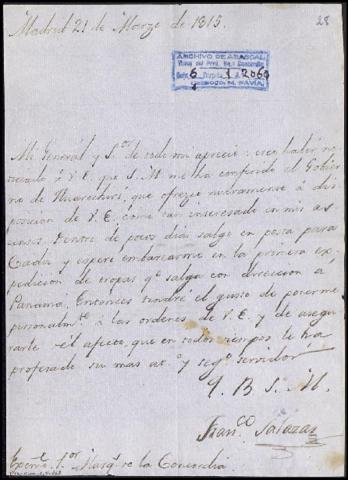 Madrid 21 de Marzo de 1815.
28
ARCHIVO DE ABASCAL
6 1 2060
Mi General y S.or de todo mi aprecio: creo haber no
ticiado á V.E. que S.M. me ha conferido el Gobier
no de que ofrezco nuevamente á dis
posicion de V.E. como tan interesado en mis as
censos. Dentro de pocos dias salgo en posta para
Cadiz y espero embarcarme en la primera ex
pedicion de tropas q.e salga con direccion a
Panamá. Entonces tendré el gusto de ponerme
personalm.te á las ordenes de V.E. y de asegu
rarle el afecto que en todos tiempos le ha
profesado su mas at.o y seg.o servidor
Q. B. S. M.
Fran.co Salazar
Excmo. S.or Marq.s de la Concordia